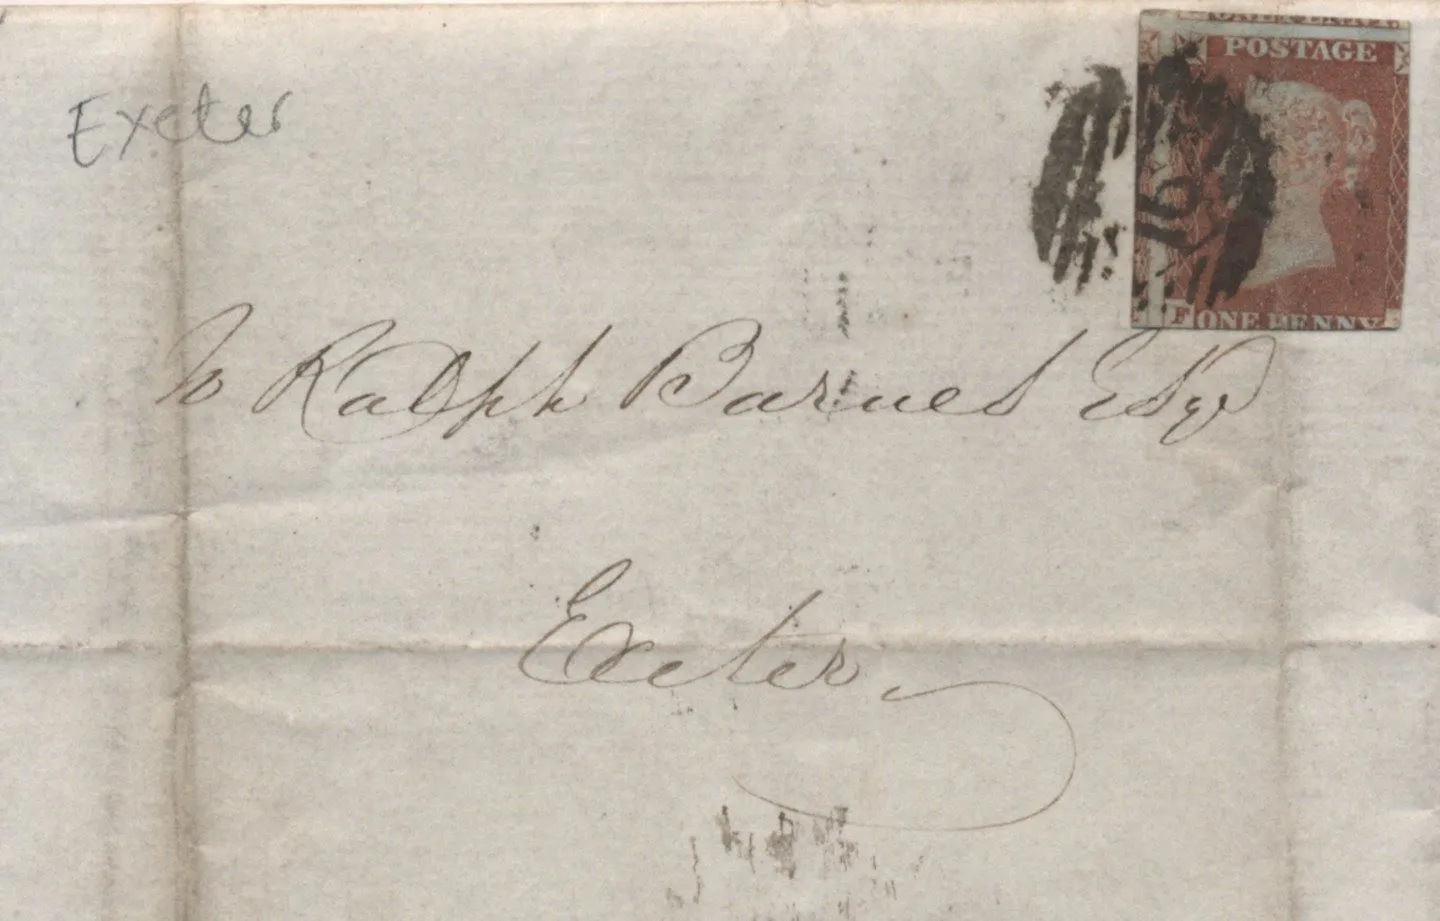 ONE PENNY.
POSTAGE
Exeter
To Ralph Barnes Esqr
F ONE PENNY
Exeter